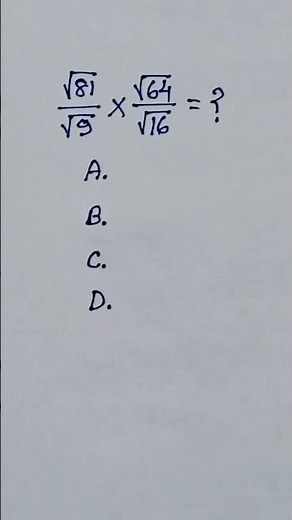 √81/√9 × √64/√16 = ?
A.
B.
C.
D.